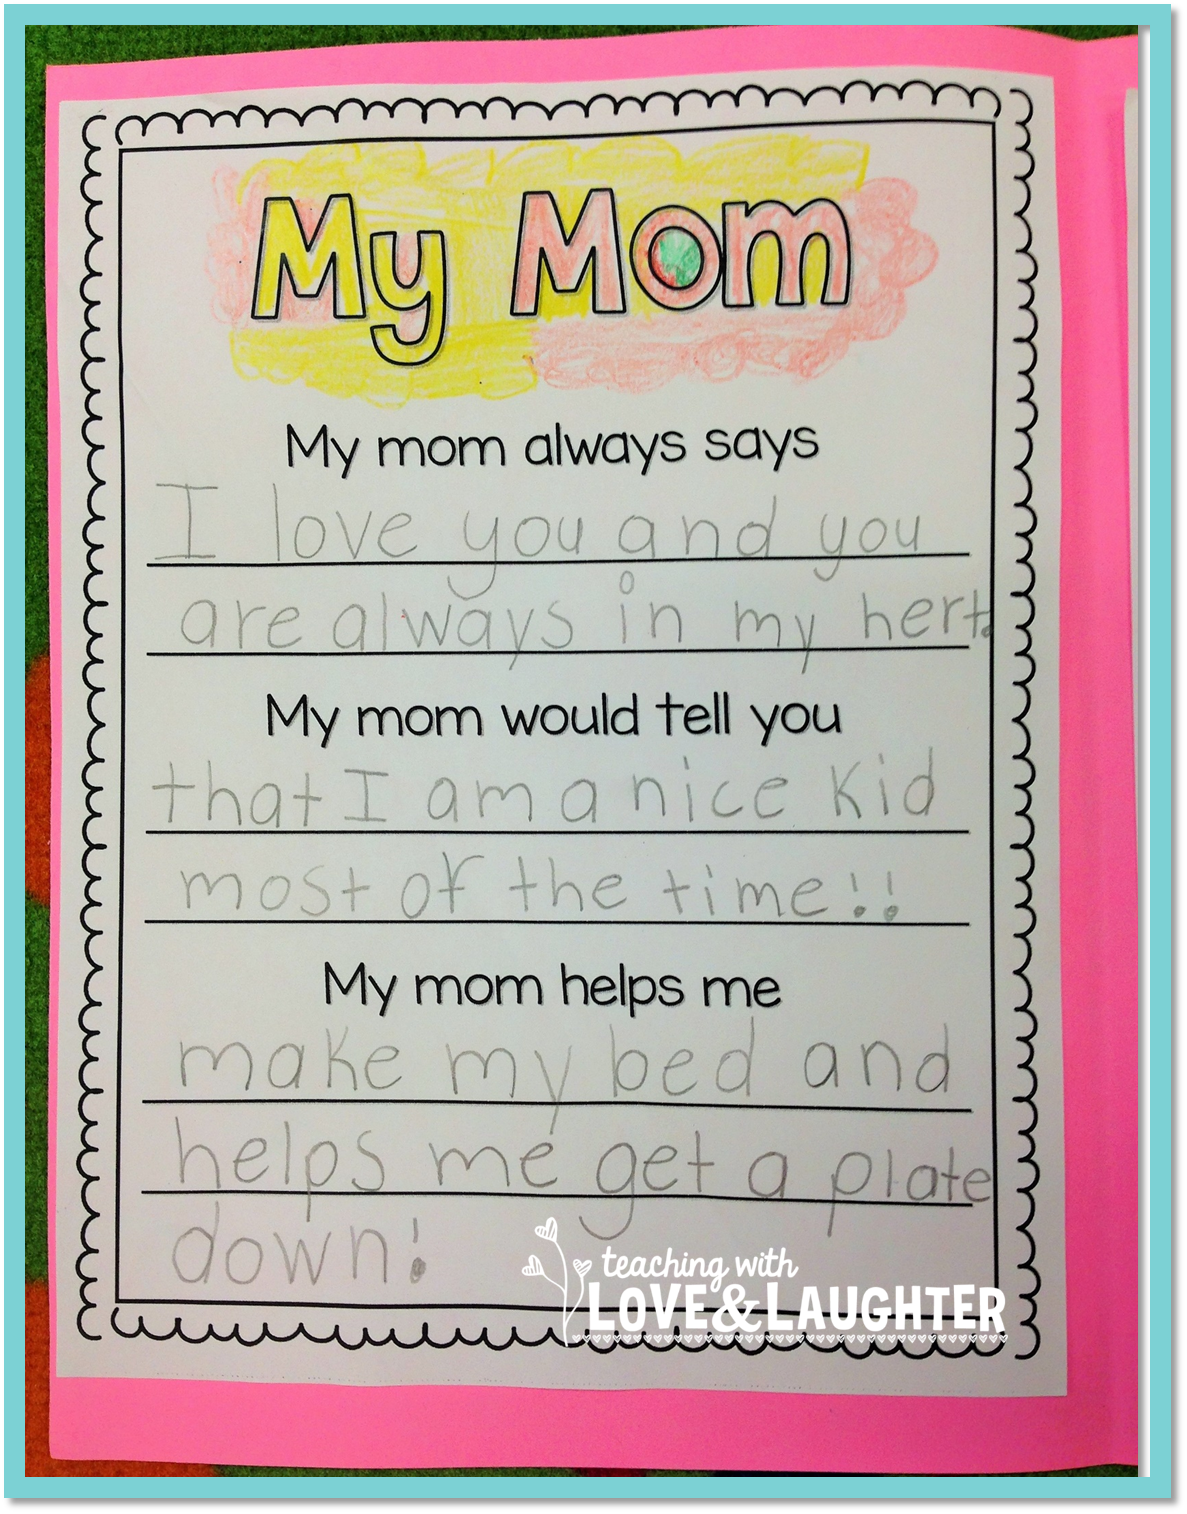 My Mom
My mom always says
I love you and you
are always in my hert.
My mom would tell you
that I am a nice kid
most of the time!!
My mom helps me
make my bed and
helps me get a plate
down!
teaching with
LOVE&LAUGHTER